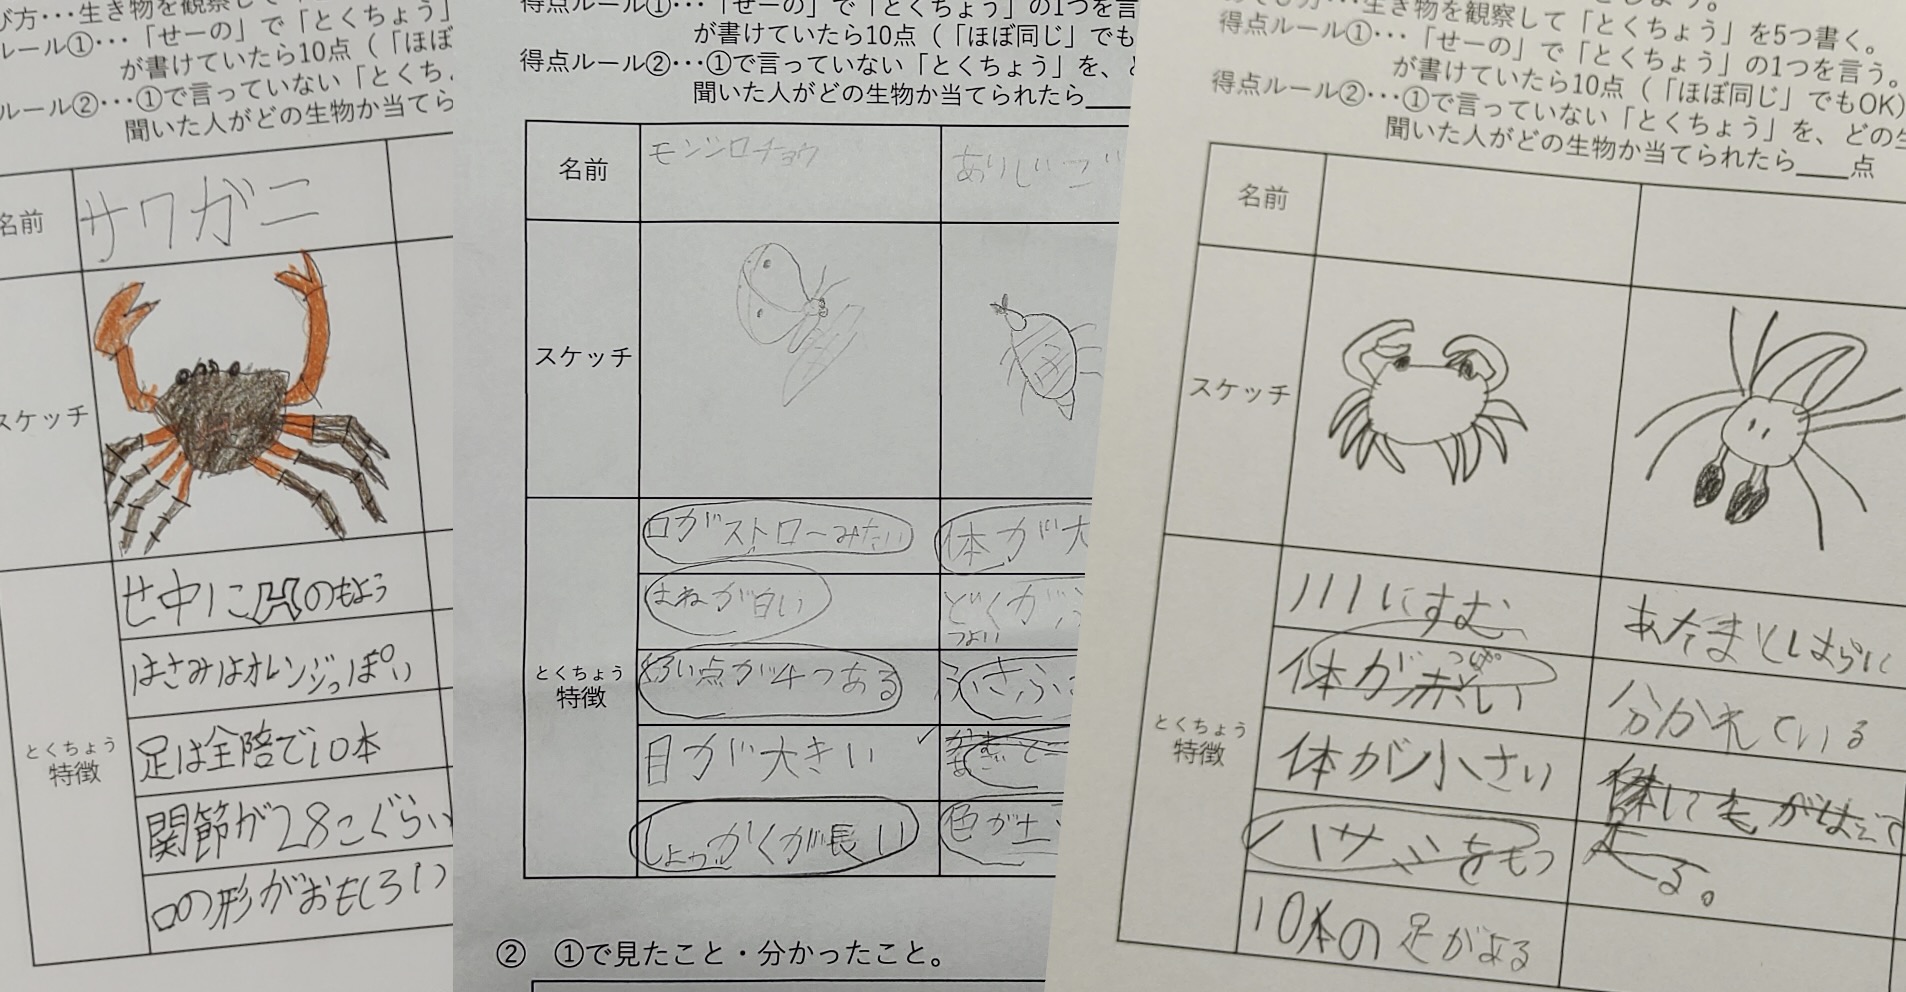 び方･･･生き物を観察して
ルール①･･･「せーの」で「とくちょう」
が書けていたら10点（「ほぼ
ルール②･･･①で言っていない「とくち
聞いた人がどの生物か当てら
名前
サワガニ
スケッチ
とくちょう
特徴
せ中にHのもよう
はさみはオレンジっぽい
足は全陪で10本
関節が28こぐらい
口の形がおもしろい
得点ルール①･･･「せーの」で「とくちょう」の1つを言
が書けていたら10点（「ほぼ同じ」でも
得点ルール②･･･①で言っていない「とくちょう」を、
聞いた人がどの生物か当てられたら
名前
モンシロチョウ
ありじごく
スケッチ
とくちょう
特徴
口がストローみたい
はねが白い
くろい点が4つある
目が大きい
しょっかくが長い
体が大
どくが
つよい
ふさふさ
色が土
② ①で見たこと・分かったこと。
生き物を観察して「とくちょう」を5つ書く。
得点ルール①･･･「せーの」で「とくちょう」の1つを言う。
が書けていたら10点（「ほぼ同じ」でもOK）
得点ルール②･･･①で言っていない「とくちょう」を、どの生
聞いた人がどの生物か当てられたら____点
名前
スケッチ
とくちょう
特徴
川にすむ
体が赤っぽい
体が小さい
ハサミをもつ
10本の足がある
あたまとしまらに
分かれている
がはえて
る。